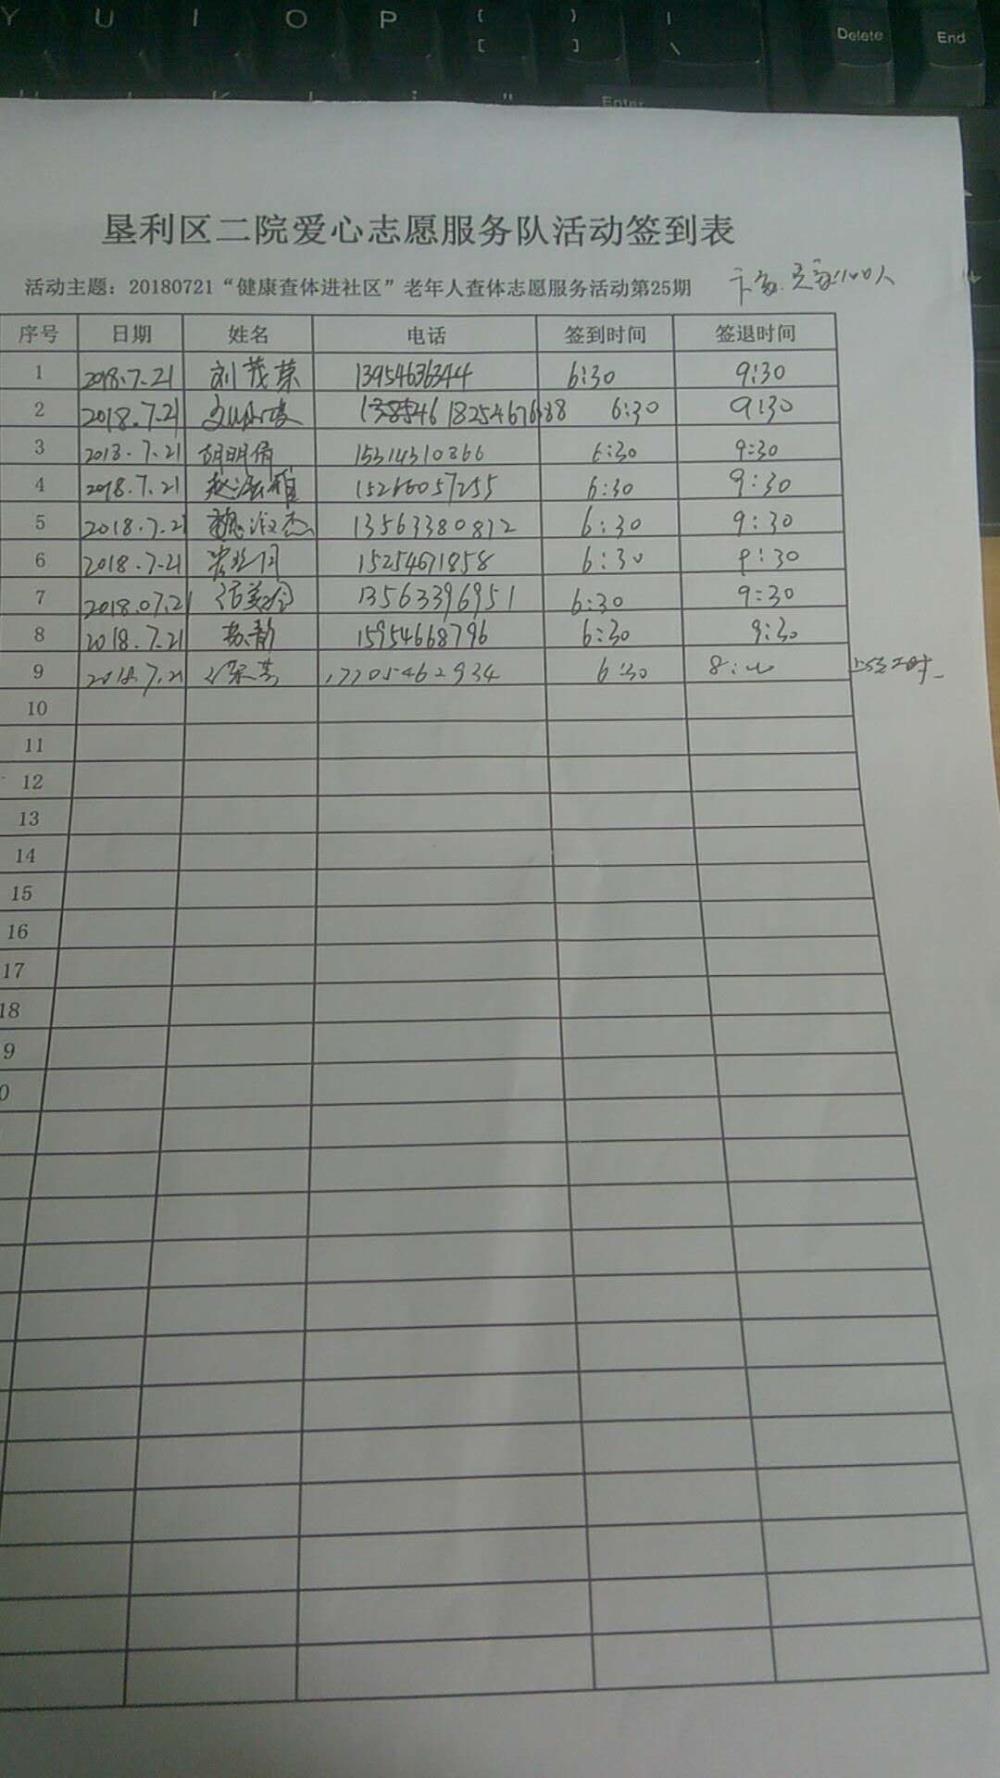 Y U I O P { [ } ] | \ Delete End
Enter
垦利区二院爱心志愿服务队活动签到表
活动主题：20180721“健康查体进社区”老年人查体志愿服务活动第25期
序号 日期 姓名 电话 签到时间 签退时间
1 2018.7.21 刘茂荣 13954636344 6:30 9:30
2 2018.7.21 18254676188 6:30 9:30
3 2018.7.21 胡明倩 15314310866 6:30 9:30
4 2018.7.21 15266057255 6:30 9:30
5 2018.7.21 魏淑杰 13563380812 6:30 9:30
6 2018.7.21 15254671858 6:30 9:30
7 2018.07.21 13563396951 6:30 9:30
8 2018.7.21 苏静 15954668796 6:30 9:30
9 2018.7.21 17705462934 6:30
10
11
12
13
14
15
16
17
18
9
0